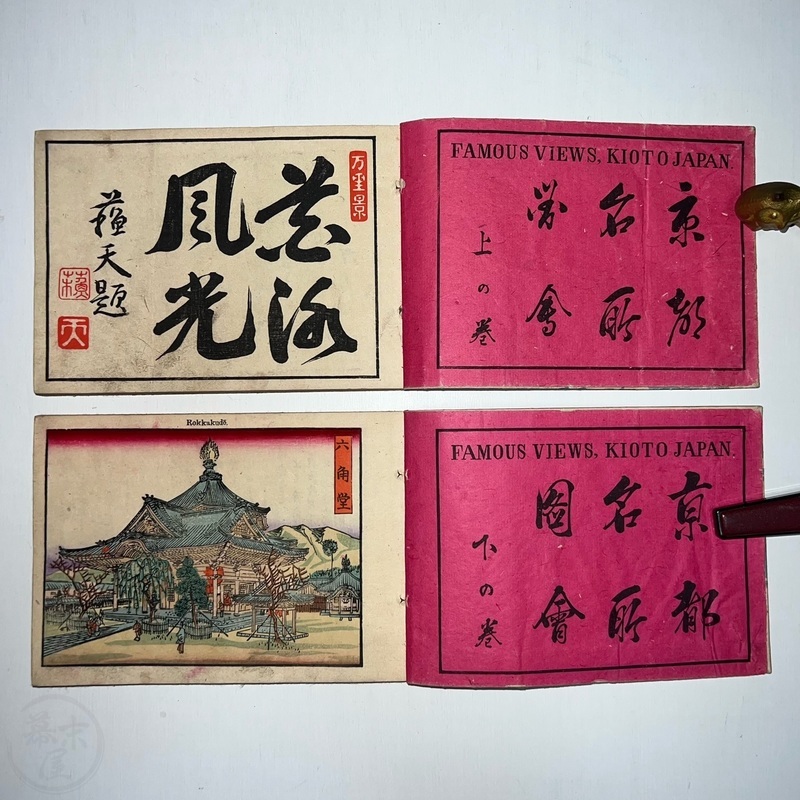 風光
題
天
FAMOUS VIEWS, KIOTO JAPAN.
京都
名所
圖會
上の巻
Rokkakudō.
六角堂
FAMOUS VIEWS, KIOTO JAPAN.
京都
名所
圖會
下の巻
幕末屋